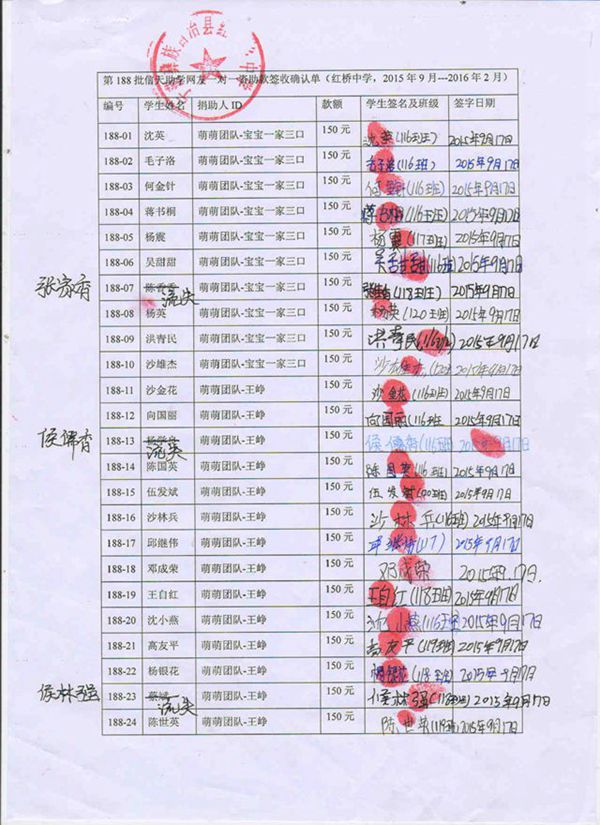 第188批信天助学网友一对一资助款签收确认单（红桥中学，2015年9月---2016年2月）
编号 学生姓名 捐助人ID 款额 学生签名及班级 签字日期
188-01 沈英 萌萌团队-宝宝一家三口 150元 沈英(116班) 2015年9月17日
188-02 毛子洛 萌萌团队-宝宝一家三口 150元 毛子洛(116班) 2015年9月17日
188-03 何金针 萌萌团队-宝宝一家三口 150元 何金针(116班) 2015年9月17日
188-04 蒋书桐 萌萌团队-宝宝一家三口 150元 蒋书桐(116班) 2015年9月17日
188-05 杨震 萌萌团队-宝宝一家三口 150元 杨震(117班) 2015年9月17日
188-06 吴甜甜 萌萌团队-宝宝一家三口 150元 吴甜甜(116班) 2015年9月17日
张家香 188-07 流失 萌萌团队-宝宝一家三口 150元 (118班) 2015年9月17日
188-08 杨英 萌萌团队-宝宝一家三口 150元 杨英(120班) 2015年9月17日
188-09 洪青民 萌萌团队-宝宝一家三口 150元 洪青民(116班) 2015年9月17日
188-10 沙雄杰 萌萌团队-宝宝一家三口 150元 沙雄杰 2015年9月17日
188-11 沙金花 萌萌团队-王峥 150元 沙金花(116班) 2015年9月17日
188-12 向国丽 萌萌团队-王峥 150元 向国丽(116班 2015年9月17日
侯儒香 188-13 流失 萌萌团队-王峥 150元 侯儒香(116班) 2015年9月17日
188-14 陈国英 萌萌团队-王峥 150元 陈国英(116班) 2015年9月17日
188-15 伍发斌 萌萌团队-王峥 150元 伍发斌(120班) 2015年9月17日
188-16 沙林兵 萌萌团队-王峥 150元 沙林兵(116班) 2015年9月17日
188-17 邱继伟 萌萌团队-王峥 150元 邱继伟(117) 2015年9月17日
188-18 邓成荣 萌萌团队-王峥 150元 邓成荣 2015年9月17日.
188-19 王自红 萌萌团队-王峥 150元 王自红(118班) 2015年9月17日
188-20 沈小燕 萌萌团队-王峥 150元 沈小燕(116班) 2015年9月17日
188-21 高友平 萌萌团队-王峥 150元 高友平(119班) 2015年9月17日
188-22 杨银花 萌萌团队-王峥 150元 杨银花(118班) 2015年9月17日
侯林强 188-23 蔡斌 流失 萌萌团队-王峥 150元 侯林强(118班) 2015年9月17日
188-24 陈世英 萌萌团队-王峥 150元 陈世英(119班) 2015年9月17日